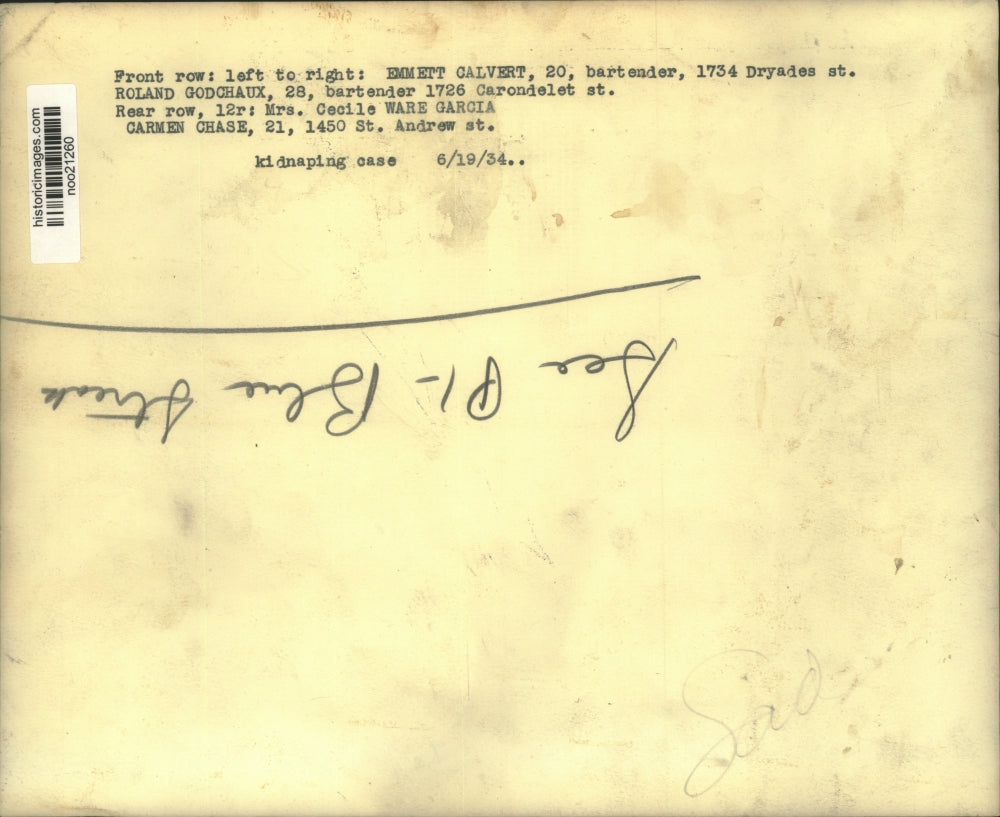 Front row: left to right: EMMETT CALVERT, 20, bartender, 1734 Dryades st.
ROLAND GODCHAUX, 28, bartender 1726 Carondelet st.
Rear row, 12r: Mrs. Cecile WARE GARCIA
CARMEN CHASE, 21, 1450 St. Andrew st.
kidnaping case 6/19/34..
historicimages.com
noo21260
See P1- Blue Streak